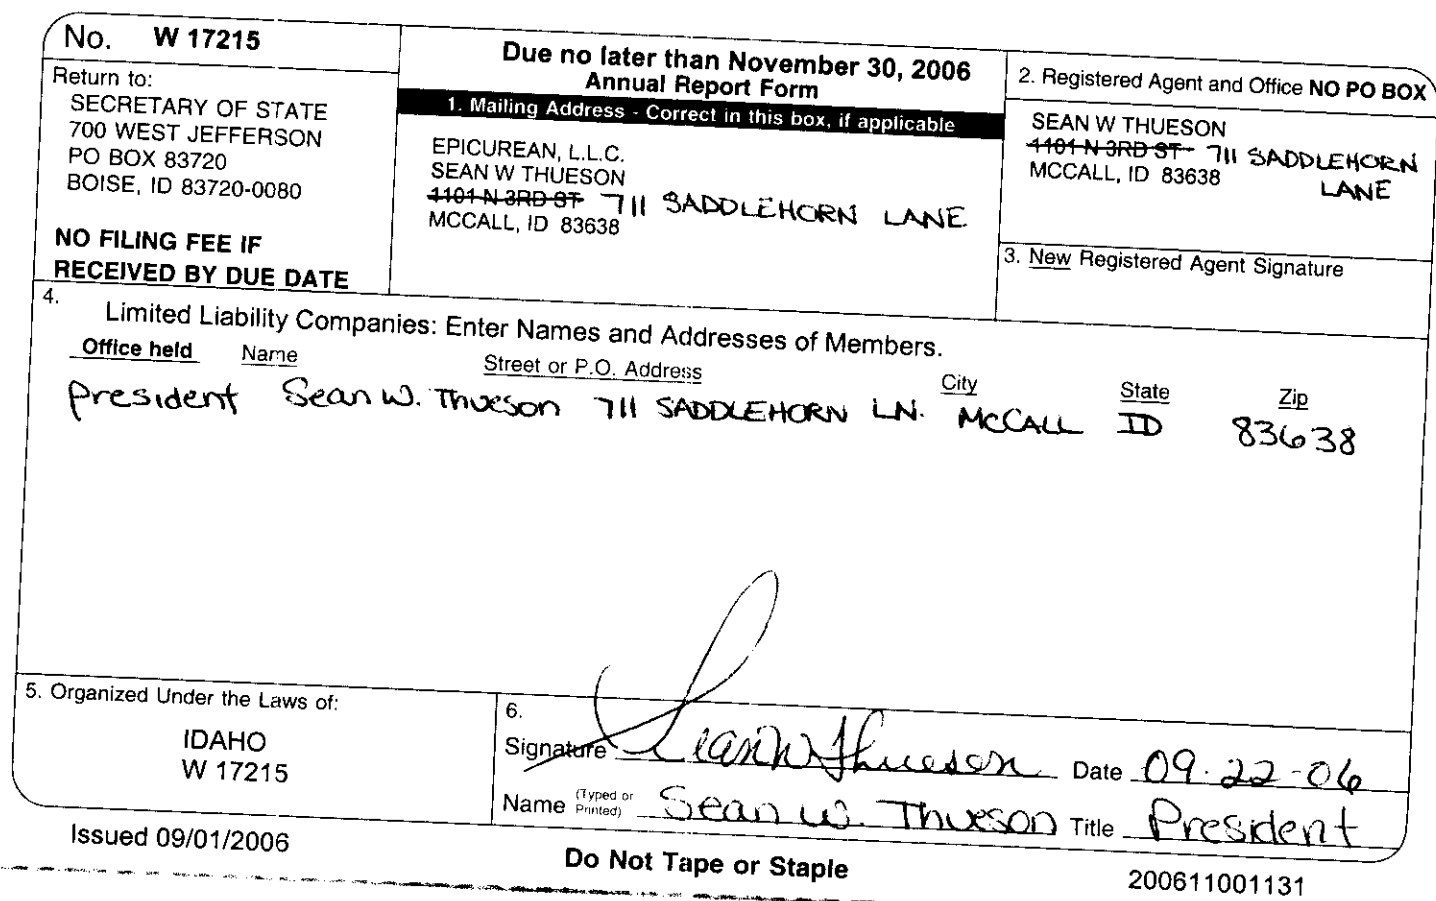 No. W 17215
Return to:
SECRETARY OF STATE
700 WEST JEFFERSON
PO BOX 83720
BOISE, ID 83720-0080
NO FILING FEE IF
RECEIVED BY DUE DATE
Due no later than November 30, 2006
Annual Report Form
1. Mailing Address - Correct in this box, if applicable
EPICUREAN, L.L.C.
SEAN W THUESON
1101 N 3RD ST 711 SADDLEHORN LANE
MCCALL, ID 83638
2. Registered Agent and Office NO PO BOX
SEAN W THUESON
1101 N 3RD ST 711 SADDLEHORN
MCCALL, ID 83638 LANE
3. New Registered Agent Signature
4.
Limited Liability Companies: Enter Names and Addresses of Members.
Office held Name Street or P.O. Address City State Zip
President Sean W. Thueson 711 SADDLEHORN LN. McCALL ID 83638
5. Organized Under the Laws of:
IDAHO
W 17215
6.
Signature Sean W Thueson Date 09-22-06
Name (Typed or Printed) Sean W. Thueson Title President
Issued 09/01/2006
Do Not Tape or Staple
200611001131